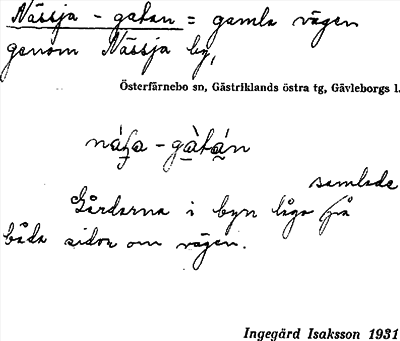 Nässja - gatan = gamla vägen
genom Nässja by,
Österfärnebo sn, Gästriklands östra tg, Gävleborgs l.
- gàtán
samlade
Gårdarna i byn lågo på
båda sidor om vägen.
Ingegärd Isaksson 1931